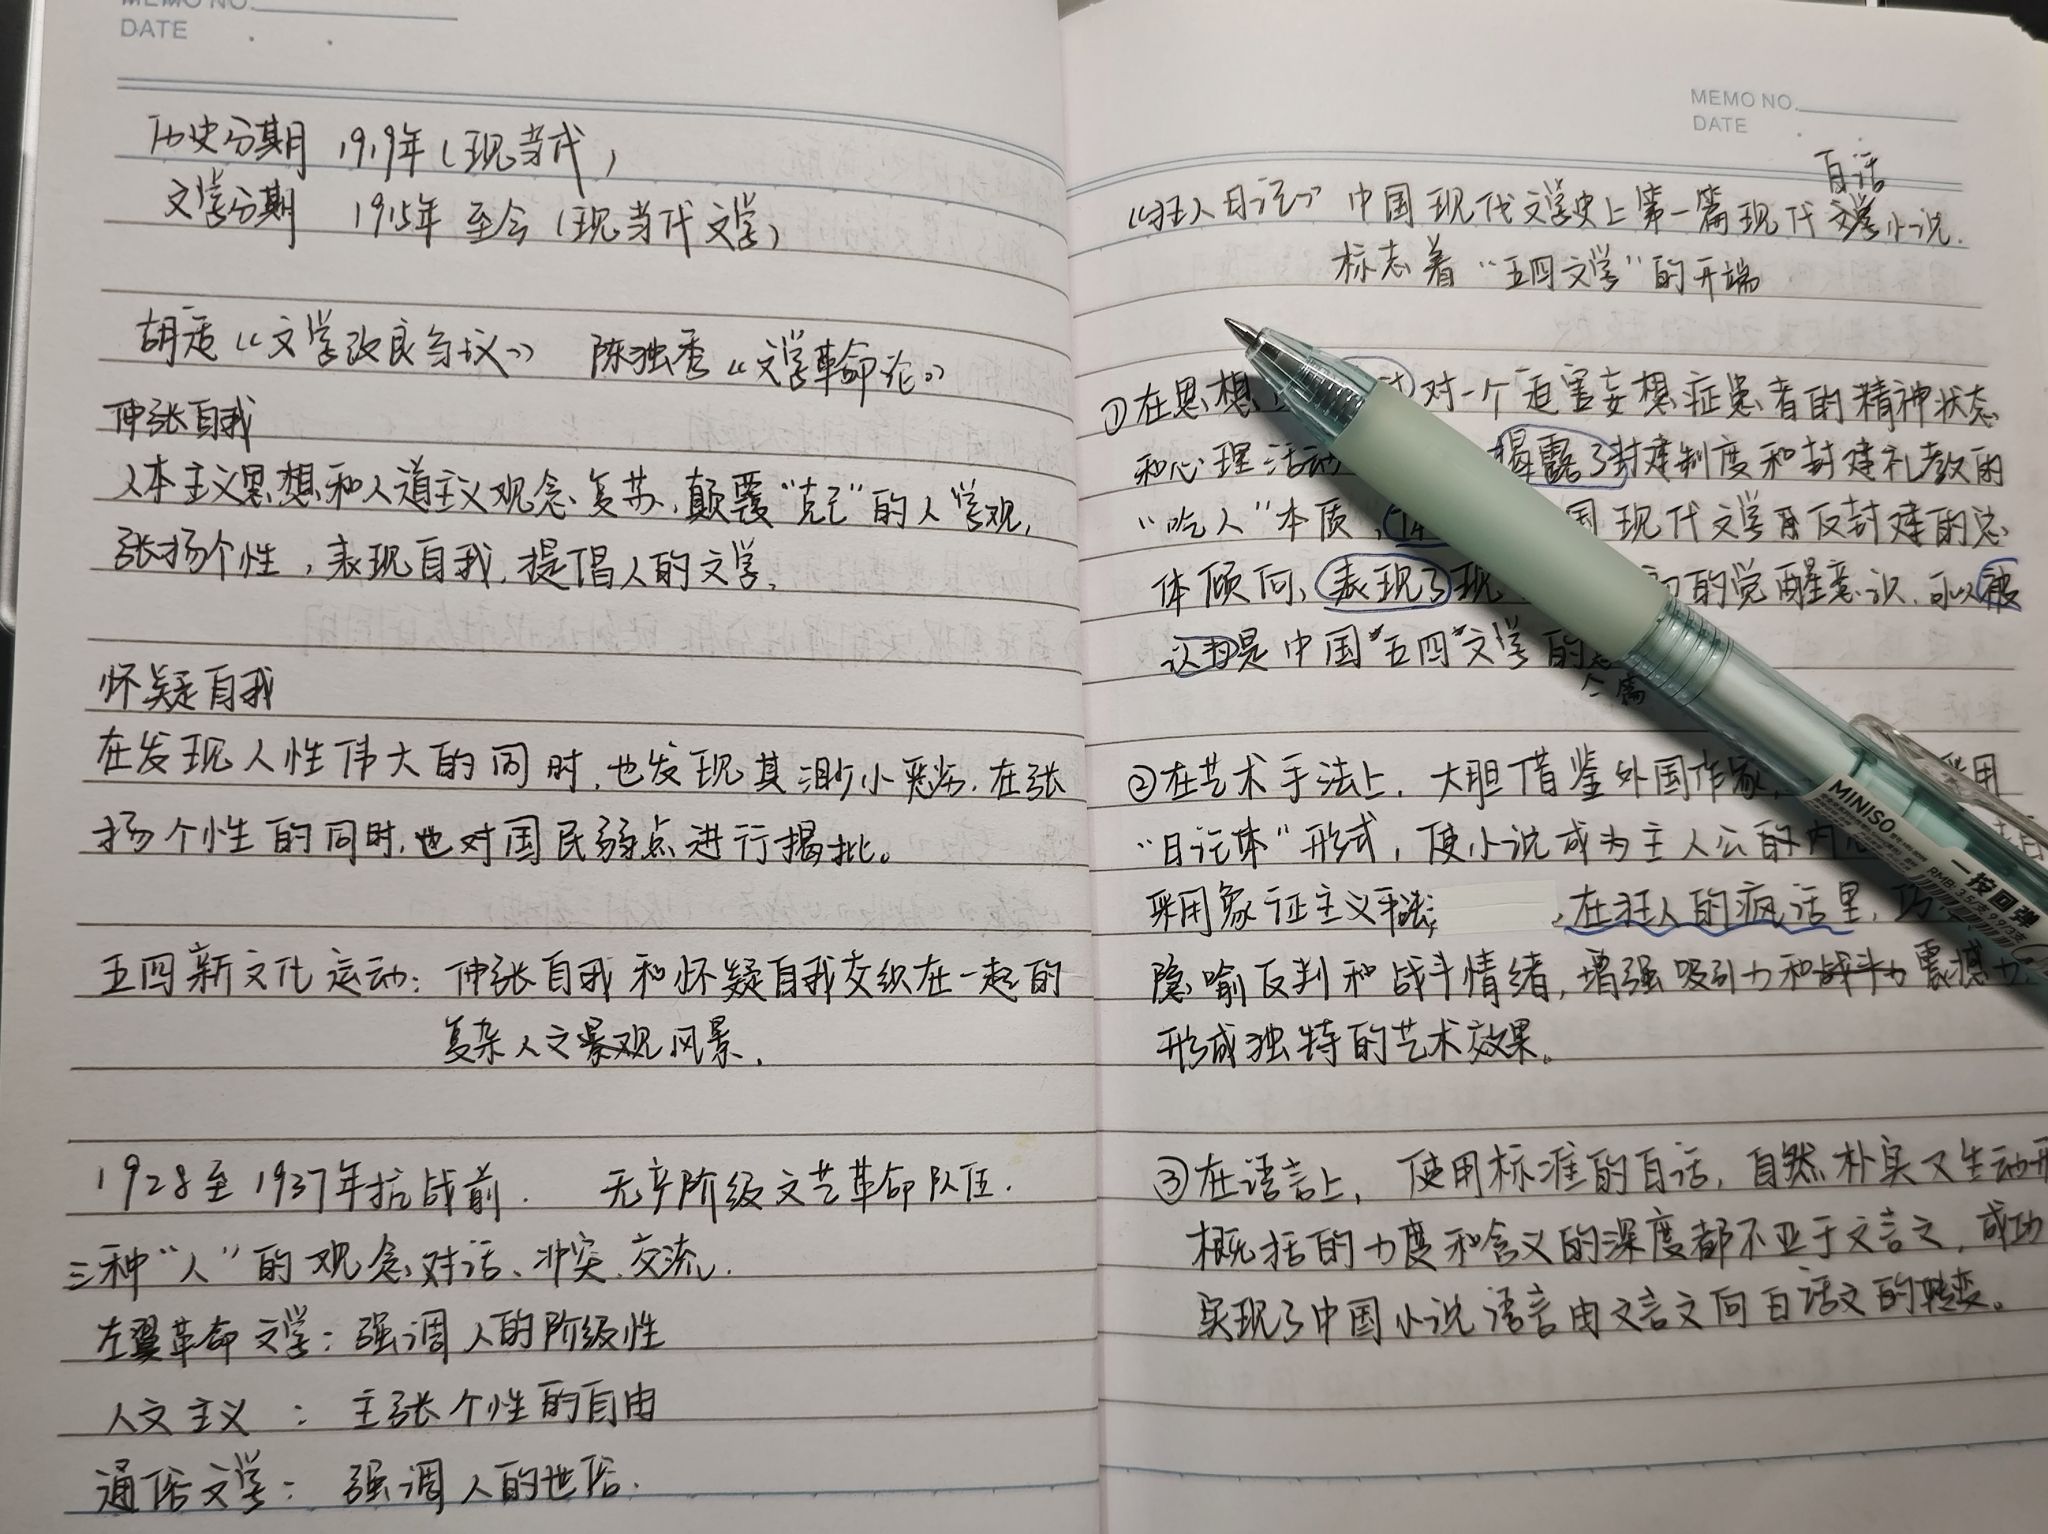 MEMO NO.
DATE
历史分期 1919年(现当代)
文学分期 1915年至今(现当代文学)
胡适《文学改良刍议》 陈独秀《文学革命论》
伸张自我
人本主义思想和人道主义观念复苏,颠覆“克己”的人学观,
张扬个性,表现自我,提倡人的文学。
怀疑自我
在发现人性伟大的同时,也发现其渺小恶劣.在张
扬个性的同时,也对国民弱点进行揭批。
五四新文化运动:伸张自我和怀疑自我交织在一起的
复杂人文景观风景.
1928至1937年抗战前. 无产阶级文艺革命队伍.
三种“人”的观念对话、冲突、交流.
左翼革命文学:强调人的阶级性
人文主义:主张个性的自由
通俗文学:强调人的世俗.
MEMO NO.
DATE
白话
《狂人日记》中国现代文学史上第一篇现代文学小说.
标志着“五四文学”的开端
①在思想 对一个迫害妄想症患者的精神状态
和心理活动 揭露了封建制度和封建礼教的
“吃人”本质, 国现代文学反封建的总
体倾向,表现了现 的觉醒意识.可以被
认为是中国“五四”文学的
篇
②在艺术手法上,大胆借鉴外国作家, 用
“日记体”形式,使小说成为主人公的内
采用象征主义手法; ,在狂人的疯话里,巧
隐喻反判和战斗情绪,增强吸引力和战斗力震撼力.
形成独特的艺术效果。
③在语言上,使用标准的白话,自然朴实又生动形
概括的力度和含义的深度都不亚于文言文,成功
实现了中国小说语言由文言文向白话文的转变。
MINISO
一按回弹